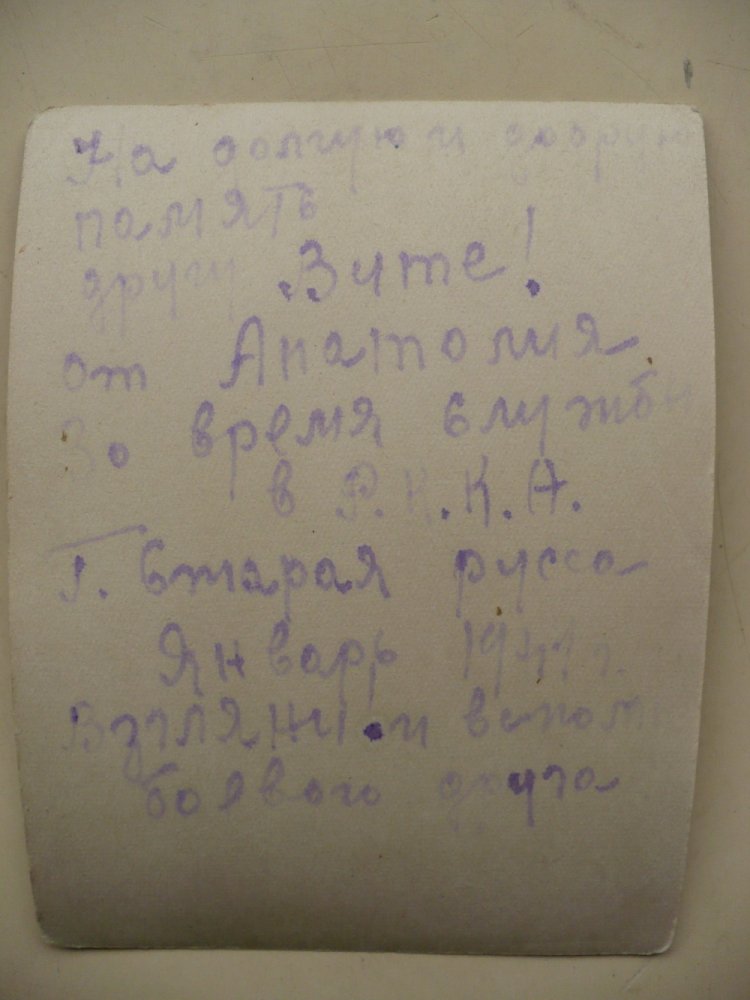 На долгую и добрую
память
другу Вите!
от Анатолия
Во время службы
в Р.К.К.А.
Г. Старая русса
Январь 1941 г.
Взгляни и вспомни
боевого друга